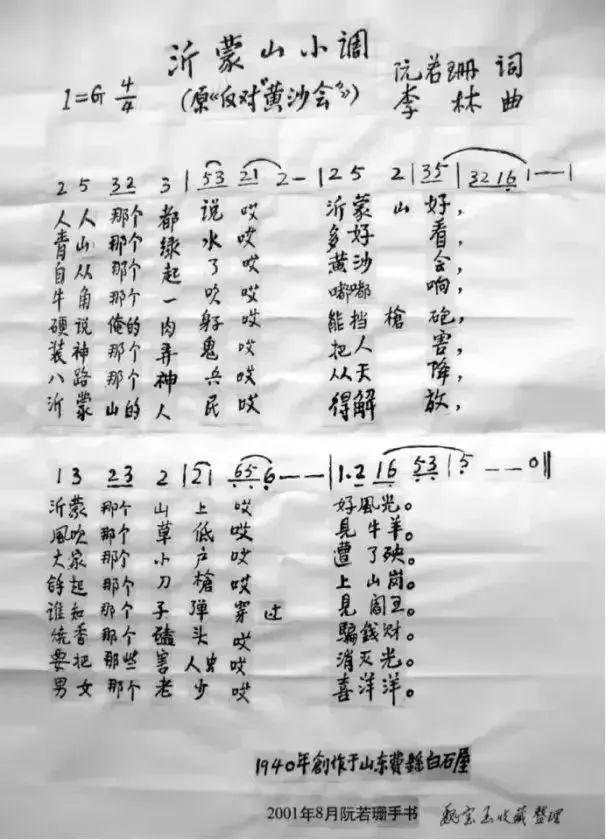 沂蒙山小调
(原《反对"黄沙会"》)
1=G 4/4
阮若珊 词
李林 曲
2 5 32 3 | 53 21 2 - | 2 5 2 | 35 | 32 16 1 - - |
人人那个都说哎 沂蒙山好,
青山那个绿水哎 多好看,
自从那个起了哎 黄沙会,
牛角那个一吹哎 嘟嘟响,
硬说俺的肉身哎 能挡槍砲,
装神那个弄鬼哎 把人害,
八路那个神兵哎 从天降,
沂蒙山的人民哎 得解放,
1 3 23 2 | 21 65 6 - - | 1·2 16 53 | 5 - - 0 ‖
沂蒙那个山上哎 好風光。
風吹那个草低哎 見牛羊。
大家那个小户哎 遭了殃。
拿起那个刀槍哎 上山岗。
谁知那个子弹穿过 見阎王。
烧香那个磕头哎 騙錢财。
要把那些害人虫哎 消灭光。
男女那个老少哎 喜洋洋。
1940年創作于山东費縣白石屋
2001年8月阮若珊手书
收藏整理